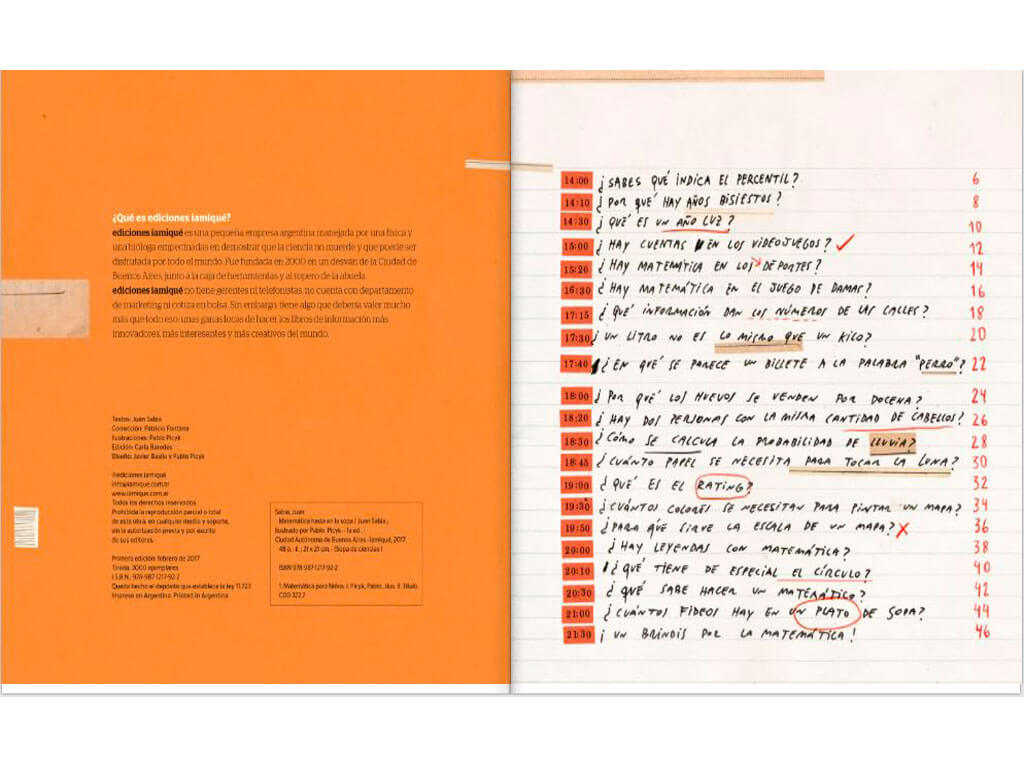 ¿Qué es ediciones iamiqué?
ediciones iamiqué es una pequeña empresa argentina manejada por una física y
una bióloga empecinadas en demostrar que la ciencia no muerde y que puede ser
disfrutada por todo el mundo. Fue fundada en 2000 en un desván de la Ciudad de
Buenos Aires, junto a la caja de herramientas y al ropero de la abuela.
ediciones iamiqué no tiene gerentes ni telefonistas, no cuenta con departamento
de marketing ni cotiza en bolsa. Sin embargo, tiene algo que debería valer mucho
más que todo eso: unas ganas locas de hacer los libros de información más
innovadores, más interesantes y más creativos del mundo.
Textos: Juan Sabia
Corrección: Patricio Fontana
Ilustraciones: Pablo Picyk
Edición: Carla Baredes
Diseño: Javier Basile y Pablo Picyk
©ediciones iamiqué
info@iamique.com.ar
www.iamique.com.ar
Todos los derechos reservados.
Prohibida la reproducción parcial o total
de esta obra, en cualquier medio y soporte,
sin la autorización previa y por escrito
de sus editores.
Primera edición: febrero de 2017
Tirada: 3000 ejemplares
I.S.B.N.: 978-987-1217-92-2
Queda hecho el depósito que establece la ley 11.723
Impreso en Argentina. Printed in Argentina
Sabia, Juan
Matemática hasta en la sopa / Juan Sabia ;
ilustrado por Pablo Picyk. - 1a ed .
Ciudad Autónoma de Buenos Aires : Iamiqué, 2017.
48 p. : il. ; 21 x 21 cm. - (Sopa de ciencias )
ISBN 978-987-1217-92-2
1. Matemática para Niños. I. Picyk, Pablo , ilus. II. Título.
CDD 322.7
14:00 ¿SABES QUÉ INDICA EL PERCENTIL? 6
14:10 ¿POR QUÉ HAY AÑOS BISIESTOS? 8
14:30 ¿QUÉ ES UN AÑO LUZ? 10
15:00 ¿HAY CUENTAS EN LOS VIDEOJUEGOS? 12
15:20 ¿HAY MATEMÁTICA EN LOS DEPORTES? 14
16:30 ¿HAY MATEMÁTICA EN EL JUEGO DE DAMAS? 16
17:15 ¿QUÉ INFORMACIÓN DAN LOS NÚMEROS DE LAS CALLES? 18
17:30 ¿UN LITRO NO ES LO MISMO QUE UN KILO? 20
17:40 ¿EN QUÉ SE PARECE UN BILLETE A LA PALABRA "PERRO"? 22
18:00 ¿POR QUÉ LOS HUEVOS SE VENDEN POR DOCENA? 24
18:20 ¿HAY DOS PERSONAS CON LA MISMA CANTIDAD DE CABELLOS? 26
18:30 ¿CÓMO SE CALCULA LA PROBABILIDAD DE LLUVIA? 28
18:45 ¿CUÁNTO PAPEL SE NECESITA PARA TOCAR LA LUNA? 30
19:00 ¿QUÉ ES EL RATING? 32
19:30 ¿CUÁNTOS COLORES SE NECESITAN PARA PINTAR UN MAPA? 34
19:50 ¿PARA QUÉ SIRVE LA ESCALA DE UN MAPA? 36
20:00 ¿HAY LEYENDAS CON MATEMÁTICA? 38
20:10 ¿QUÉ TIENE DE ESPECIAL EL CÍRCULO? 40
20:30 ¿QUÉ SABE HACER UN MATEMÁTICO? 42
21:00 ¿CUÁNTOS FIDEOS HAY EN UN PLATO DE SOPA? 44
21:30 ¡UN BRINDIS POR LA MATEMÁTICA! 46